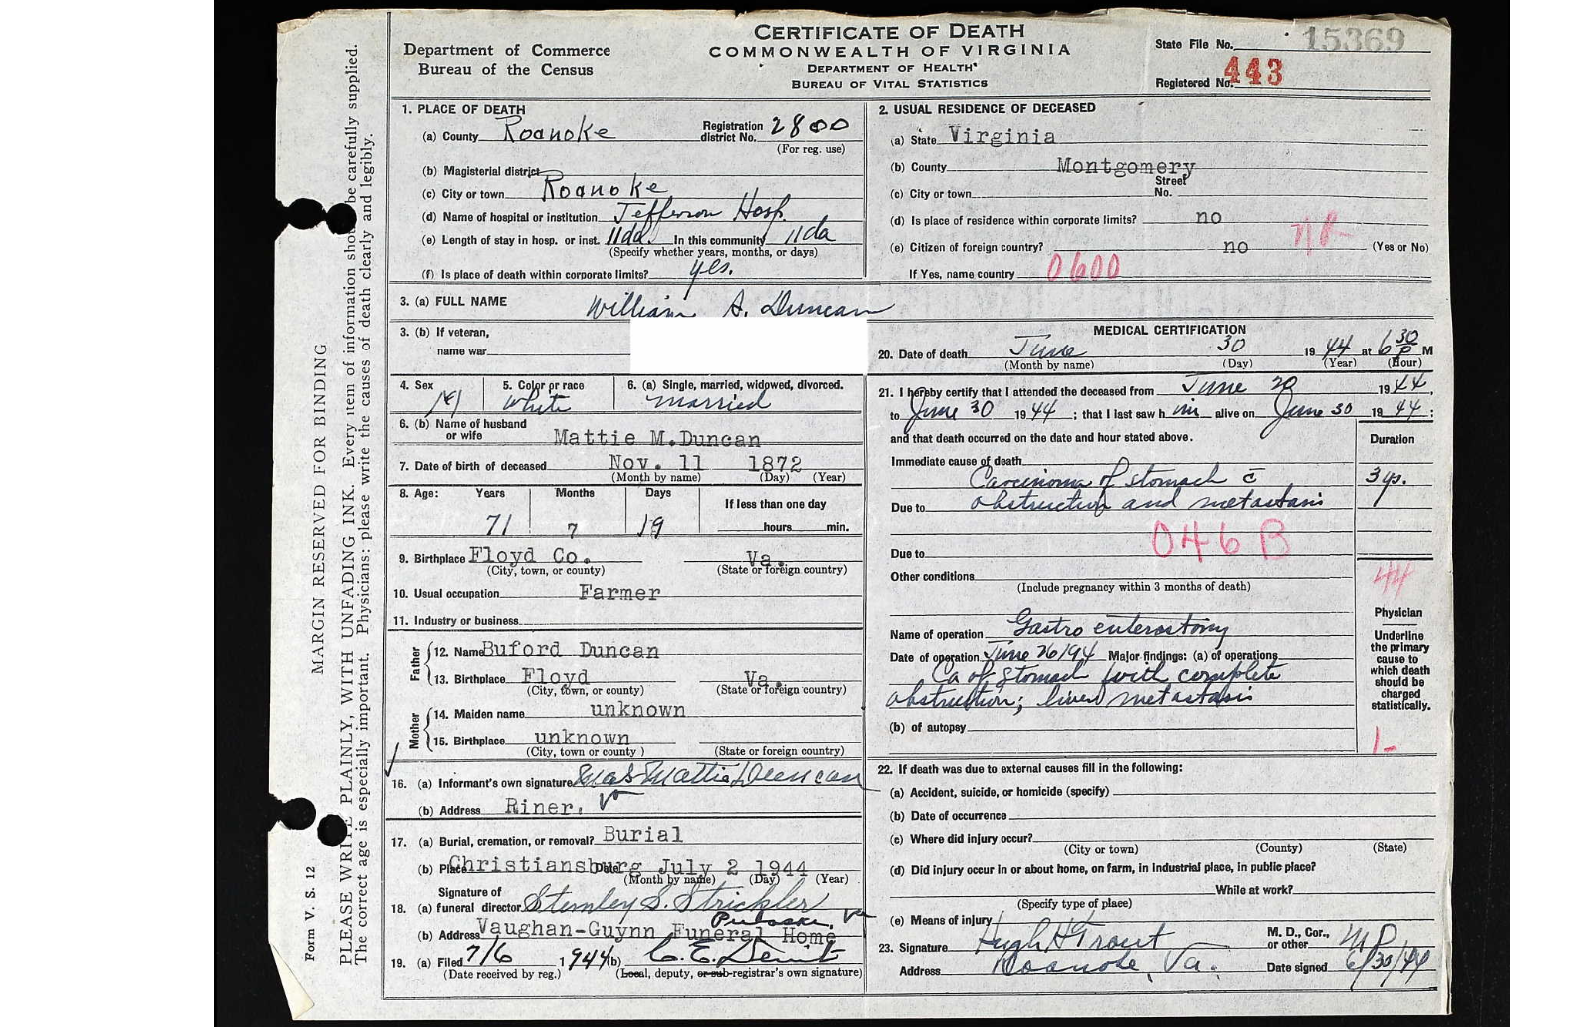 CERTIFICATE OF DEATH
COMMONWEALTH OF VIRGINIA
DEPARTMENT OF HEALTH
BUREAU OF VITAL STATISTICS
Department of Commerce
Bureau of the Census
State File No. 15369
Registered No. 443
MARGIN RESERVED FOR BINDING
PLEASE WRITE PLAINLY, WITH UNFADING INK. Every item of information should be carefully supplied.
The correct age is especially important. Physicians: please write the causes of death clearly and legibly.
Form V. S. 12
1. PLACE OF DEATH
(a) County Roanoke Registration district No. 2800
(For reg. use)
(b) Magisterial district
(c) City or town Roanoke
(d) Name of hospital or institution Jefferson Hosp.
(e) Length of stay in hosp. or inst. 11da. In this community 11da
(Specify whether years, months, or days)
(f) Is place of death within corporate limits? yes.
2. USUAL RESIDENCE OF DECEASED
(a) State Virginia
(b) County Montgomery
(c) City or town Street No.
(d) Is place of residence within corporate limits? no
(e) Citizen of foreign country? no (Yes or No)
If Yes, name country 0600
3. (a) FULL NAME William A. Duncan
3. (b) If veteran,
name war
4. Sex M 5. Color or race White 6. (a) Single, married, widowed, divorced. Married
6. (b) Name of husband or wife Mattie M.Duncan
7. Date of birth of deceased Nov. 11 1872
(Month by name) (Day) (Year)
8. Age: Years Months Days If less than one day
71 7 19 hours min.
9. Birthplace Floyd Co. Va.
(City, town, or county) (State or foreign country)
10. Usual occupation Farmer
11. Industry or business
Father
12. Name Buford Duncan
13. Birthplace Floyd Va.
(City, town, or county) (State or foreign country)
Mother
14. Maiden name unknown
15. Birthplace unknown
(City, town or county) (State or foreign country)
16. (a) Informant's own signature Mrs Mattie Duncan
(b) Address Riner, Va
17. (a) Burial, cremation, or removal? Burial
(b) Place Christiansburg Date July 2 1944
(Month by name) (Day) (Year)
Signature of
18. (a) funeral director Stemley S. Strickler
Pulaski, Va
(b) Address Vaughan-Guynn Funeral Home
19. (a) Filed 7/6 1944 (b) C. E.
(Date received by reg.) (Local, deputy, or sub-registrar's own signature)
MEDICAL CERTIFICATION
20. Date of death June 30 1944 at 6 30 P M
(Month by name) (Day) (Year) (Hour)
21. I hereby certify that I attended the deceased from June 20 1944,
to June 30 1944; that I last saw him alive on June 30 1944;
and that death occurred on the date and hour stated above. Duration
Immediate cause of death
Carcinoma of stomach c̄ 3 yr.
Due to obstruction and metastasis
046 B
Due to
Other conditions
(Include pregnancy within 3 months of death)
44
Physician
Underline the primary cause to which death should be charged statistically.
1-
Name of operation Gastro enterostomy
Date of operation June 26/94 Major findings: (a) of operations
Ca of stomach with complete
obstruction; liver metastasis
(b) of autopsy
22. If death was due to external causes fill in the following:
(a) Accident, suicide, or homicide (specify)
(b) Date of occurrence
(c) Where did injury occur?
(City or town) (County) (State)
(d) Did injury occur in or about home, on farm, in industrial place, in public place?
While at work?
(Specify type of place)
(e) Means of injury
23. Signature Hugh H Trout M. D., Cor., or other MD
Address Roanoke, Va. Date signed 6/30/44